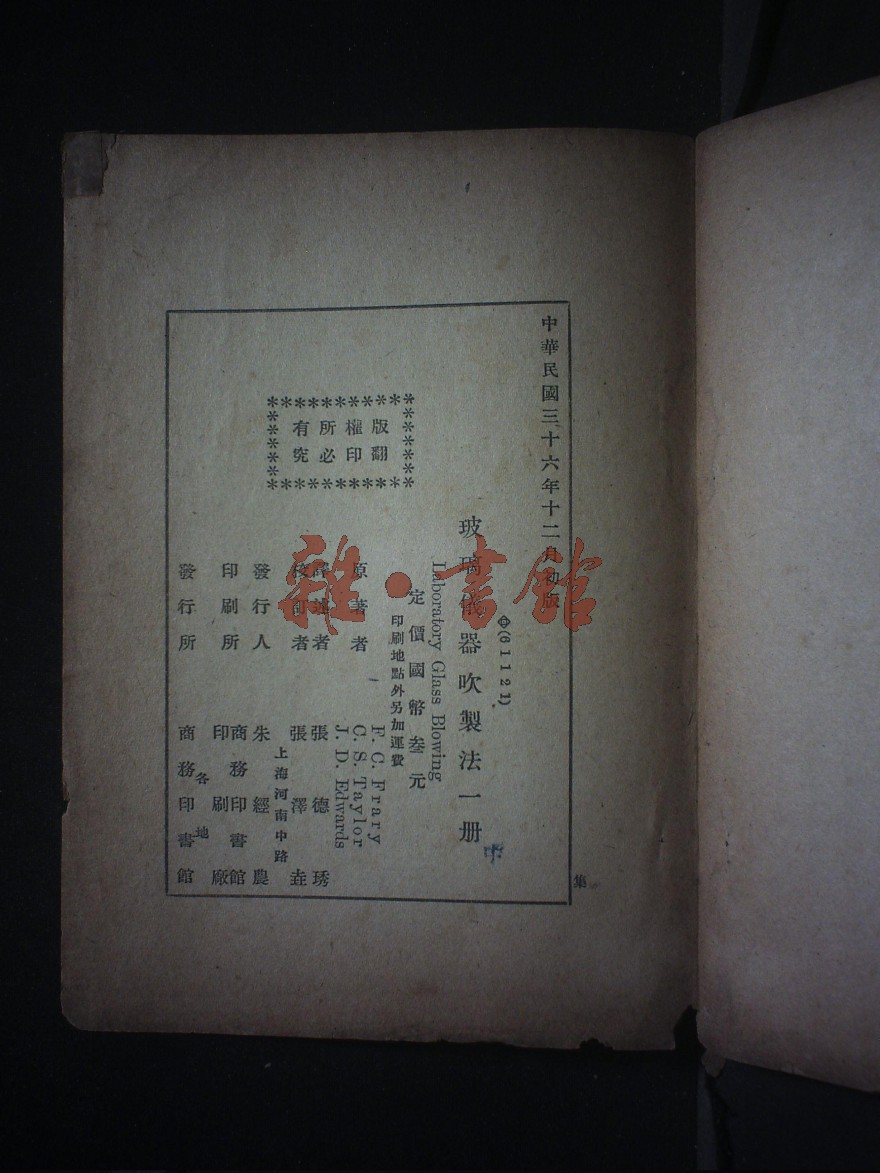 中華民國三十六年十二月初版
(61121)
玻璃儀器吹製法一册
Laboratory Glass Blowing
定價國幣叁元
印刷地點外另加運費
版權所有
翻印必究
原著者 F. C. Frary
C. S. Taylor
J. D. Edwards
譯述者 張德琇
校訂者 張澤垚
上海河南中路
發行人 朱經農
印刷所 商務印書館
印刷廠
發行所 各地
商務印書館
集
中
雜·書館